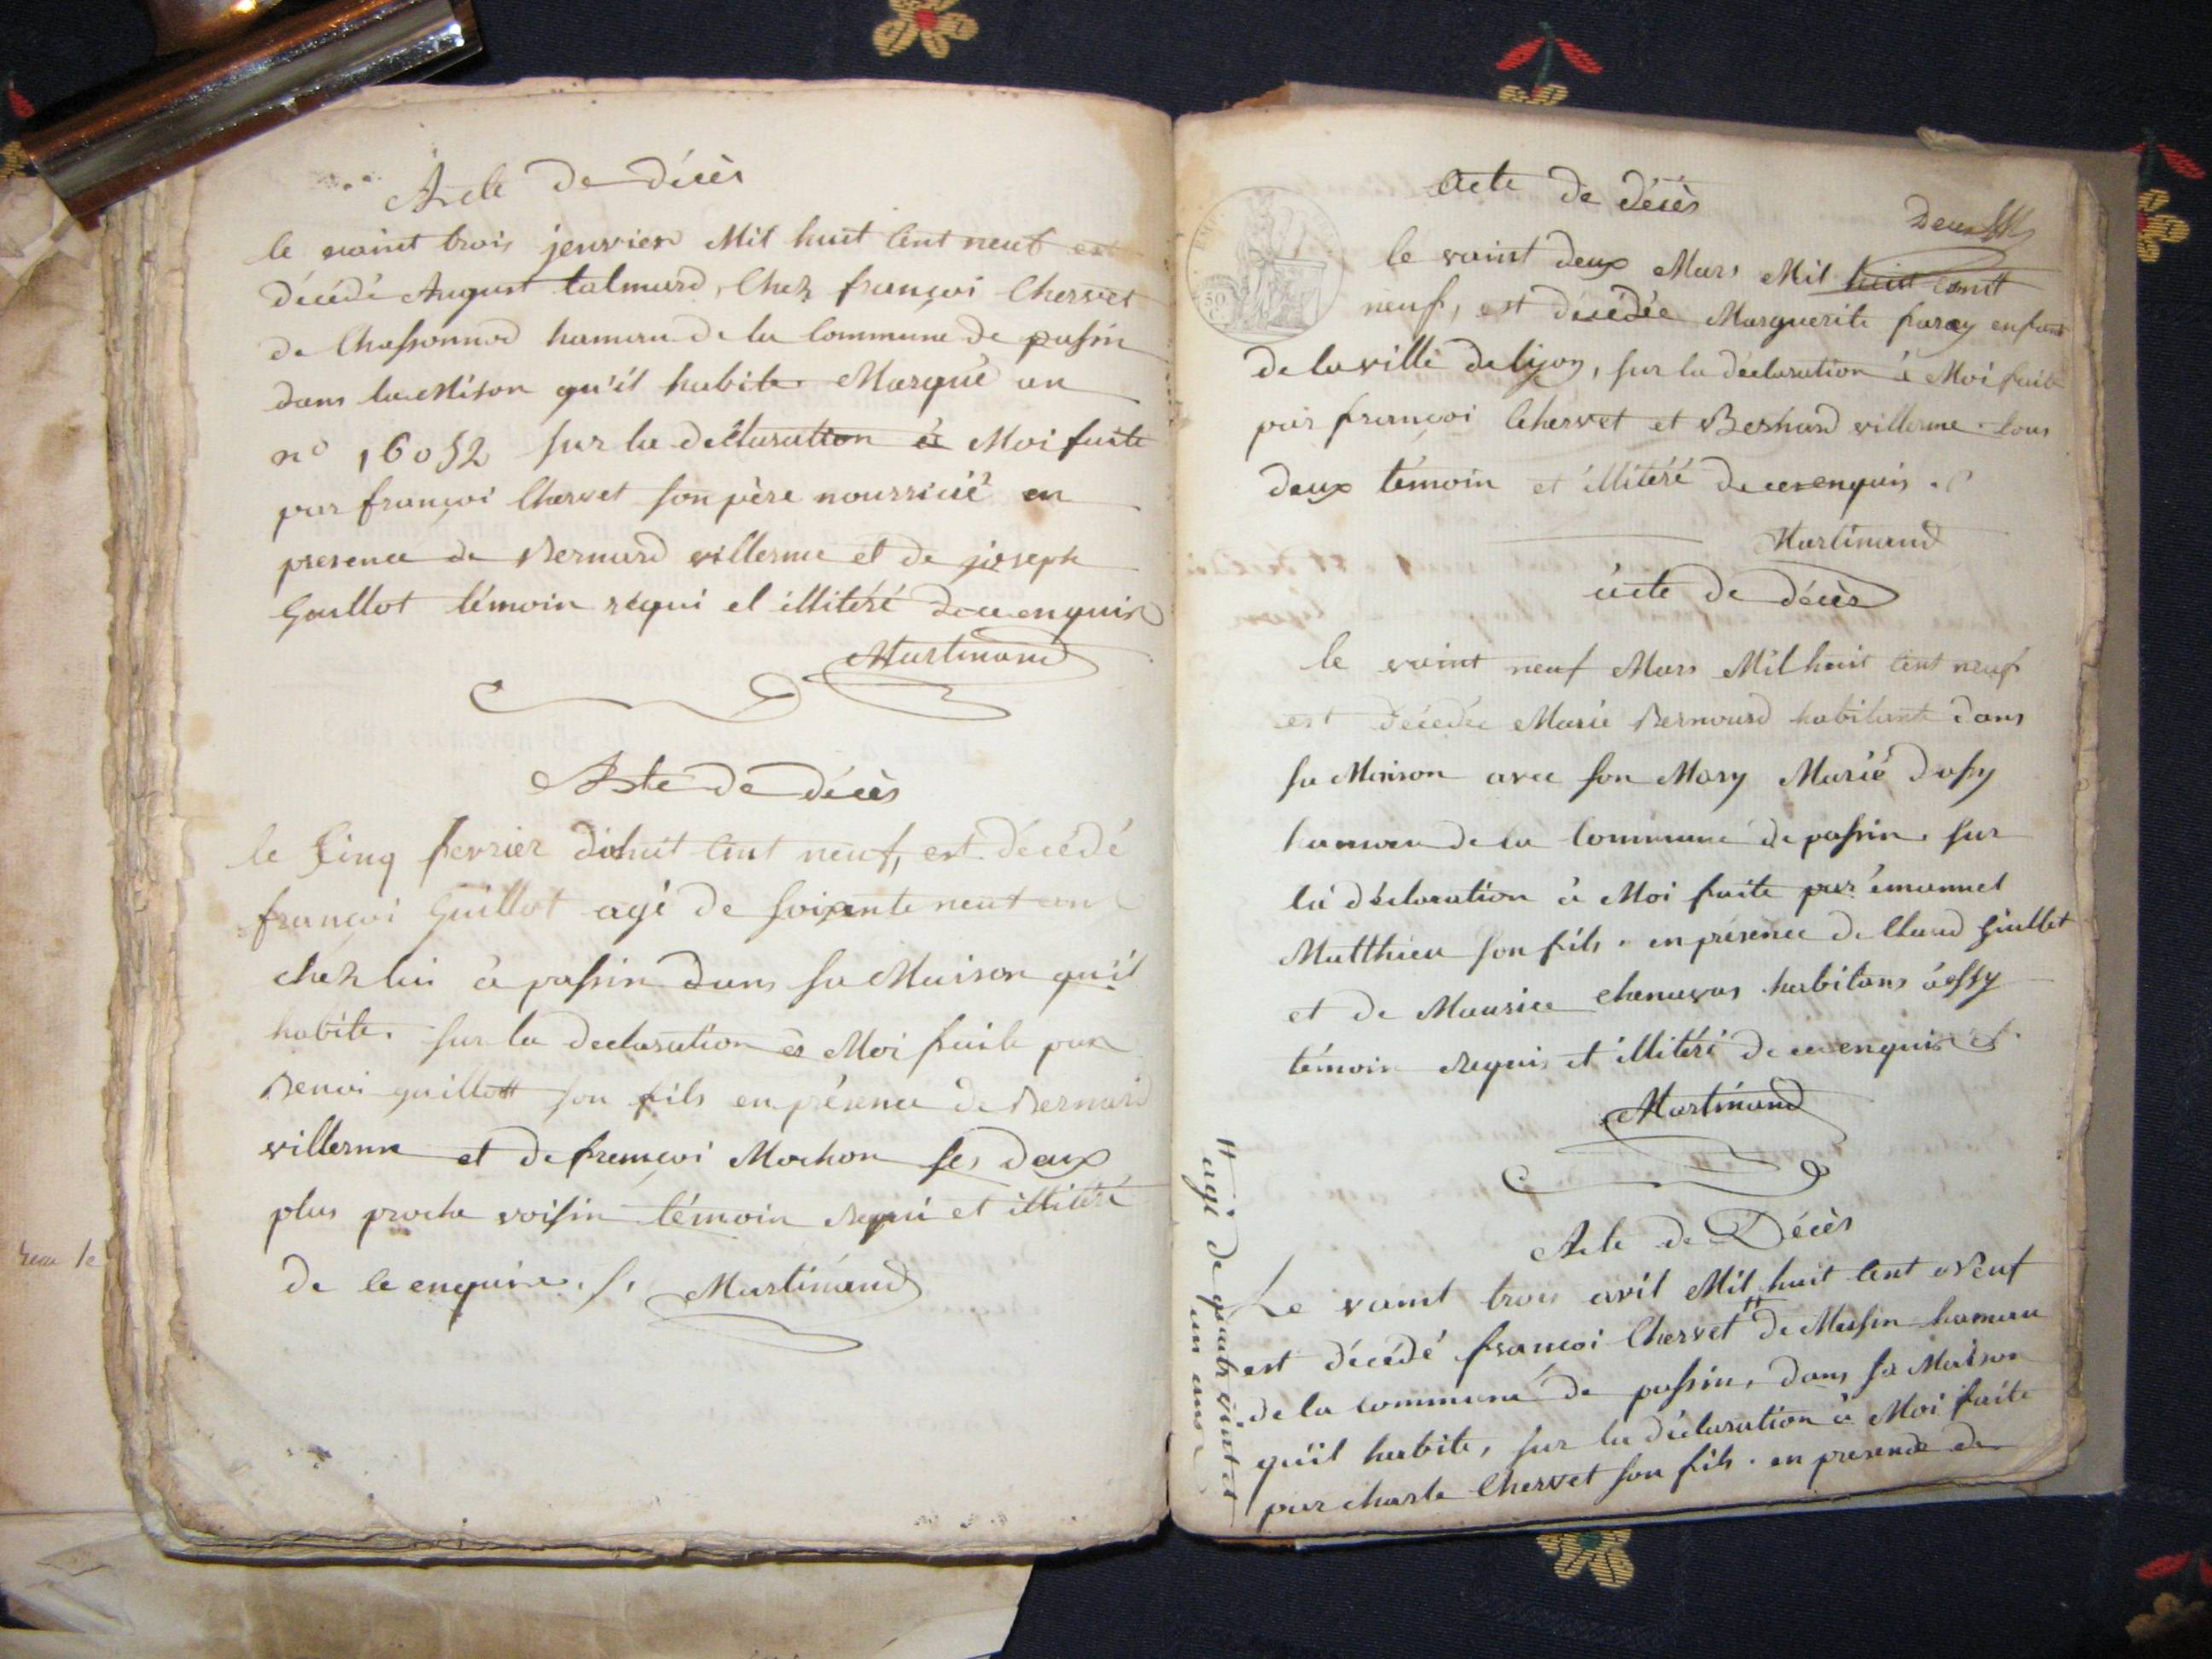 Acte de décès
le vaint trois jenvier Mil huit Cent neuf est
décédé August talmard, Chez françoi Chervet
de Chassonnod hameau de la Commune de passin
dans la Mison qu'il habite Marqué un
n° 16052 sur la déclaration à Moi faite
par françoi Chervet son père nourricié en
presence de Bernard villerme et de joseph
Guillot témoin réqui et illitéré de ce enquis
Martinand
Acte de décès
le Cinq fevrier dixhuit Cent neuf, est décédé
françoi Guillot agé de soixante neuf an
chéz lui à passin dans sa Maison qu'il
habite. sur la declaration à Moi faite par
Benoi guillott son fils en présence de Bernard
villerme et de françoi Mochon ses deux
plus proche voisin témoin requi et illitéré
de ce enquire. /. Martinand
eau le
Acte de décès
Deux
le vaint deux Mars Mil huit Cent
neuf, est décédée Marguerite faray enfant
de la ville de lyon, sur la déclaration à Moi faite
par françoi Chervet et Bernard villerme tous
deux témoin et illitéré de ce enquis.
Martinand
acte de décès
le vaint neuf Mars Mil huit Cent neuf
est décédée Marie Bernard habitante dans
sa Maison avec son Mary Marié d'assy
hameau de la Commune de passin. sur
la déclaration à Moi faite par émannel
Matthieu son fils. en présence de Claud Guillet
et de Maurice Chenavas habitans à assy
témoin requis et illitéré de ce enquis
Martinand
Acte de Décès
Le vaint trois avril Mil huit Cent Neuf
est décédé françoi Chervet # de Massin hameau
de la commune de passin, dans sa Maison
qu'il habite, sur la déclaration à Moi faite
par charle Chervet son fils. en presence de
# agé de quatr vint et
un ans
50
C